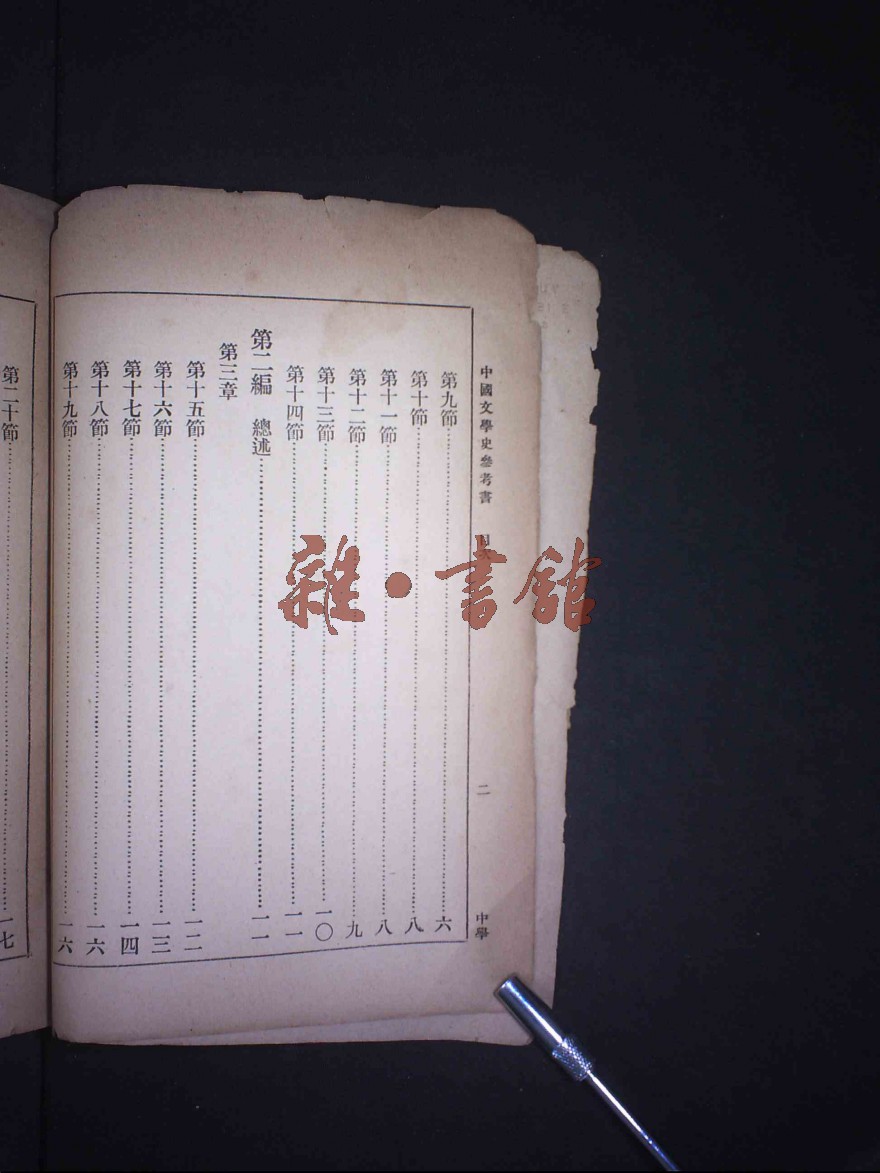 中國文學史參考書　目次　二　中學
第九節……六
第十節……八
第十一節……八
第十二節……九
第十三節……一〇
第十四節……一一
第二編　總述……一一
第三章
第十五節……一二
第十六節……一三
第十七節……一四
第十八節……一六
第十九節……一六
第二十節……一七
雜·書館